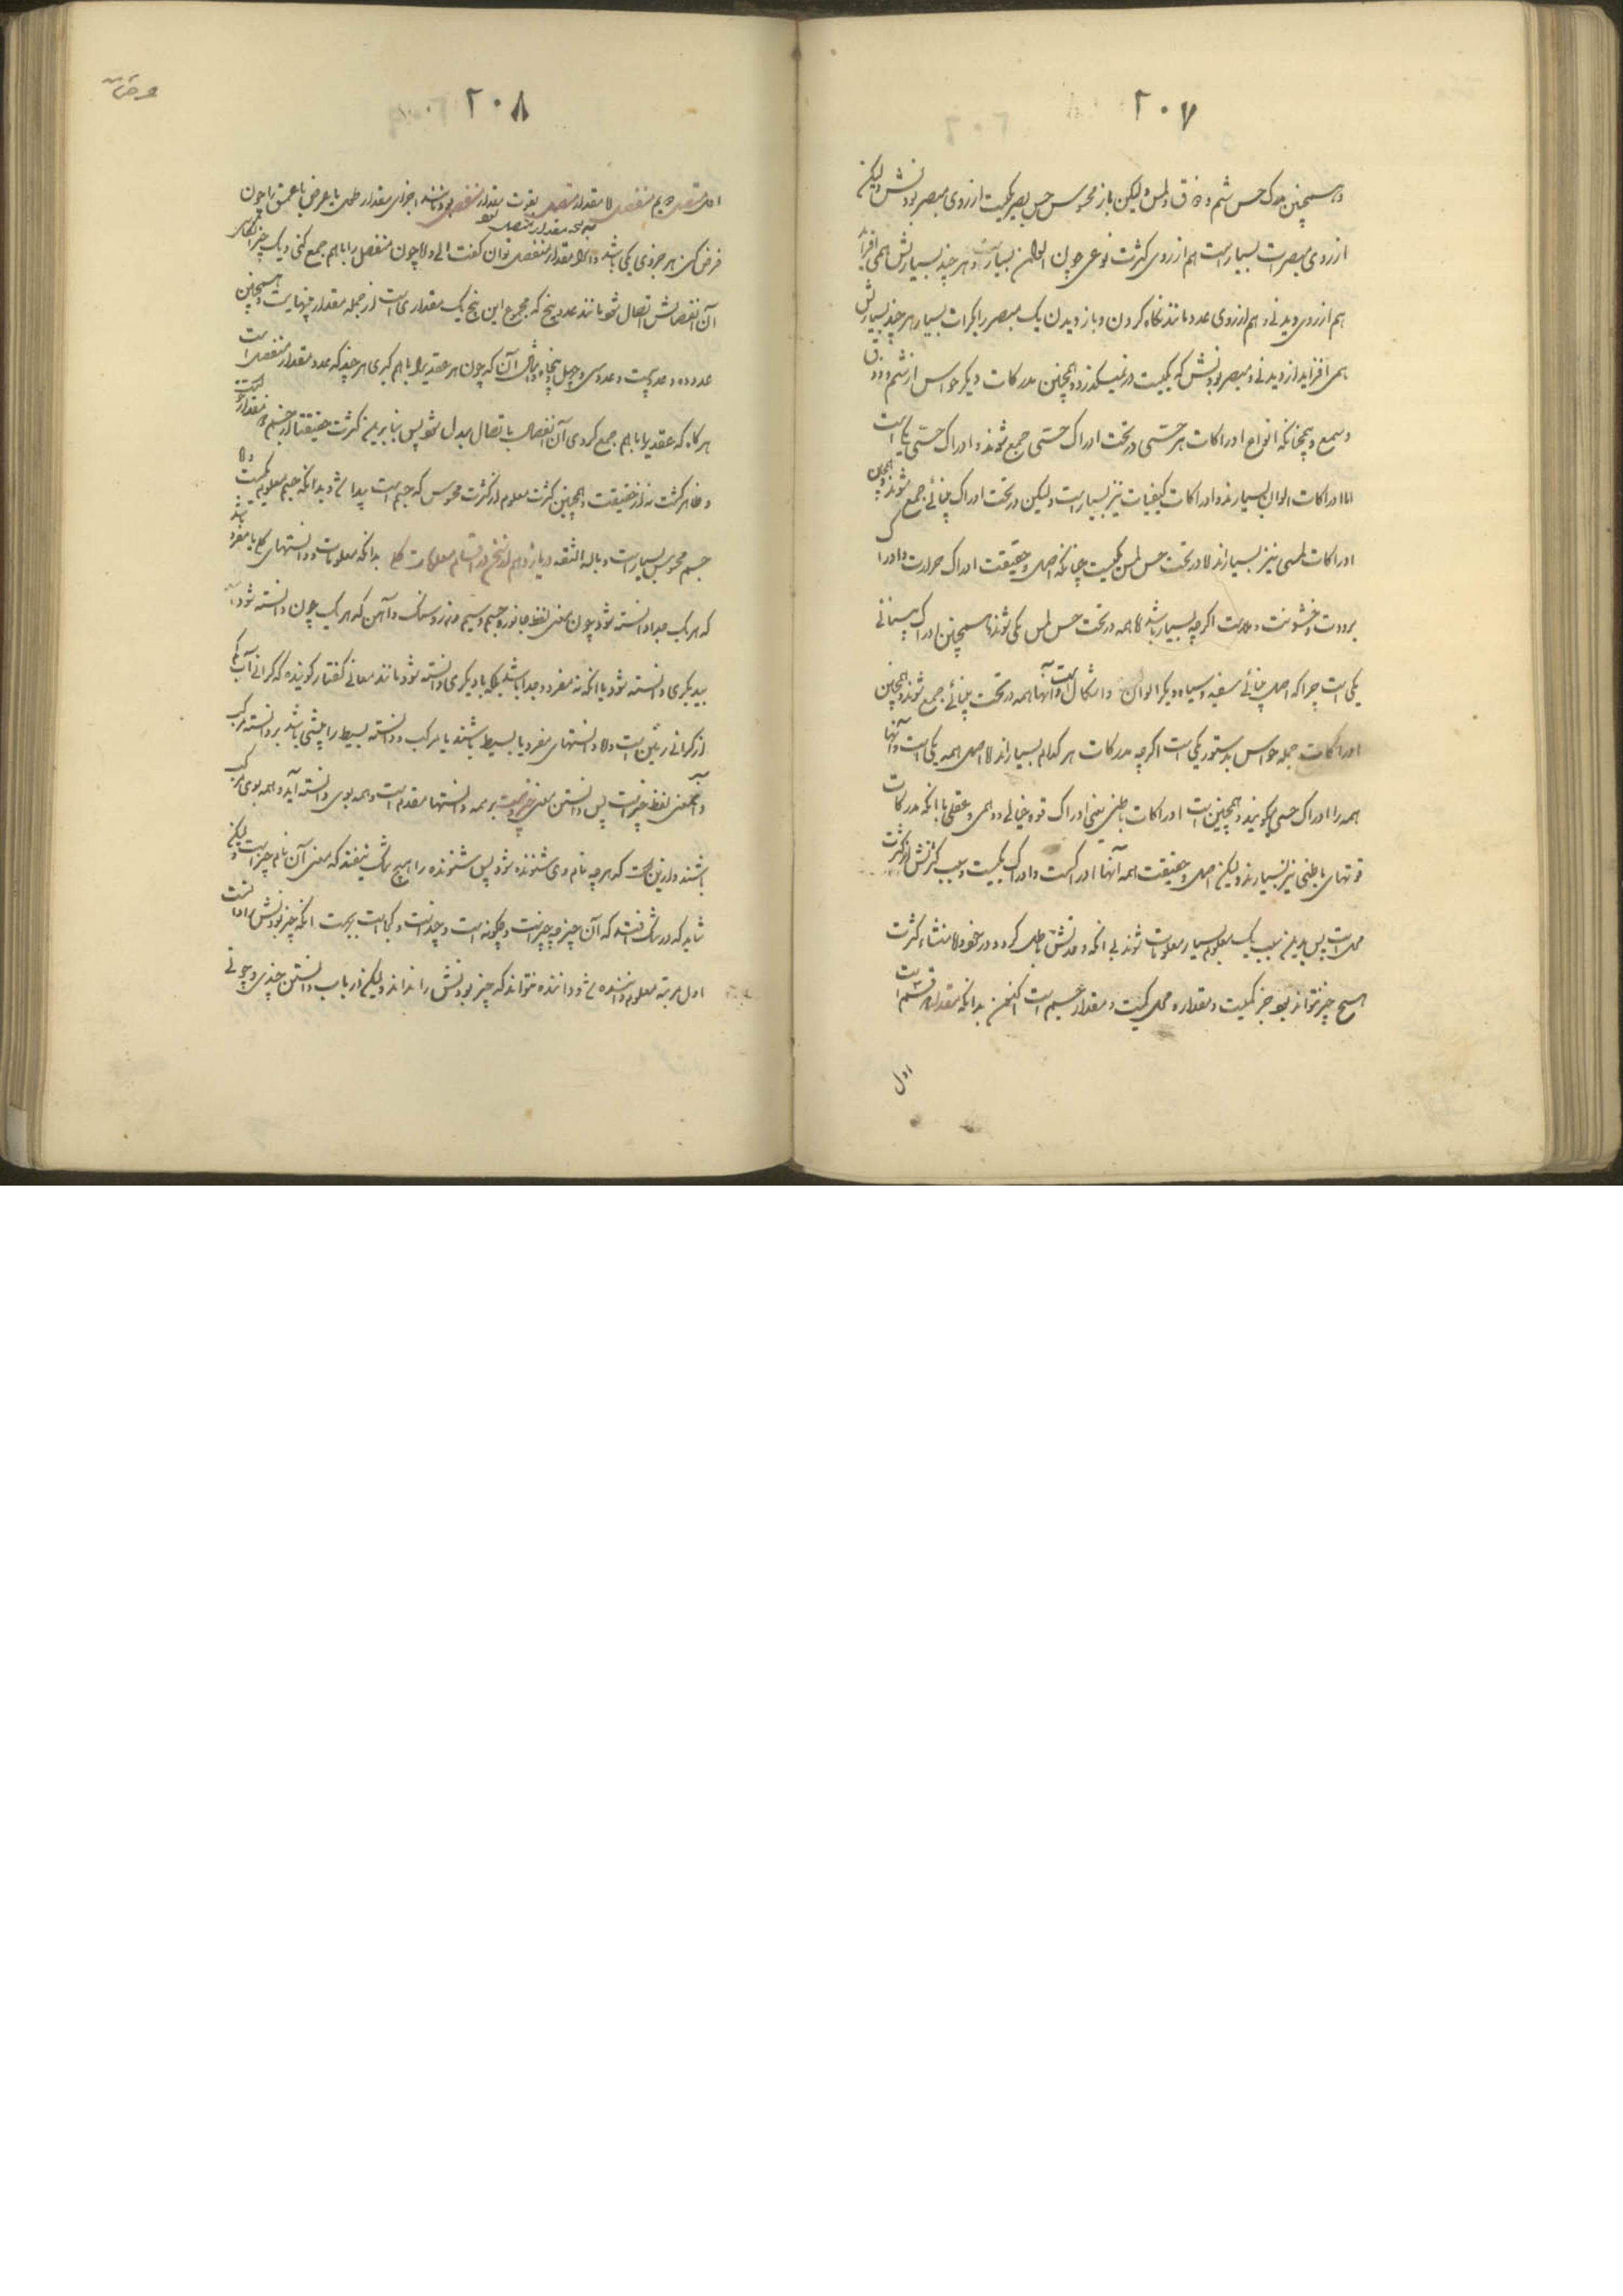 ۲۰۷
و همچنین مدرک حس شم و ذوق و لمس ولیکن باز محسوس حس بصر یکیست از روی مبصر بودنش ولیکن
از روی مبصرات بسیار است هم از روی کثرت نوعی چون الوان بسیار و هر چند بسیاریش همی افزاید
هم از روی دیدنی و هم از روی عدد مانند نگاه کردن و باز دیدن یک مبصر را بکرات بسیار هر چند بسیاریش
همی افزاید از دیدنی و مبصر بودنش که یکیست در نمیگذرد و همچنین مدرکات دیگر حواس از شم و ذوق
و سمع و همچنانکه انواع ادراکات هر حسی در تحت ادراک حسی جمع شوند و ادراک حسی یکی است
اما ادراکات الوان بسیارند و ادراکات کیفیات نیز بسیار است ولیکن در تحت ادراک بینائی جمع شوند و همچنین
ادراکات لمسی نیز بسیارند الا در تحت حس لمس یکیست چنانکه اصل و حقیقت ادراک حرارت و ادراک
برودت و خشونت و ملاست اگرچه بسیار باشد اما همه در تحت حس لمس یکی شوند همچنین ادراک بینائی
یکی است چرا که اصل بینائی سفید و سیاه و دیگر الوان و اشکال است و آنها همه در تحت بینائی جمع شوند و همچنین
ادراکات جمله حواس بدستور یکی است اگرچه مدرکات هر کدام بسیارند الا اصل همه یکی است و آنها
همه را ادراک حسی گویند و همچنین است ادراکات باطنی یعنی ادراک قوه خیالی و وهمی و عقلی با آنکه مدرکات
قوتهای باطنی نیز بسیارند ولیکن اصل و حقیقت همه آنها ادراکست و ادراک یکیست و سبب کثرتش از کثرت
محل است پس بدین سبب یک معلوم بسیار معلومات شوند بی آنکه وحدتش باطل گردد و در خود الا منشاء کثرت
هیچ چیز نتواند بود جز کمیت و مقدار و محل کمیت و مقدار جسم است اکنون بدانکه مقدار بر دو قسم است
اول
۲۰۸
اول متصل دویم منفصل الا مقدار متصل بقوت مقدار منفصل بود مانند اجزای مقدار طول یا عرض یا عمق را چون
نسخه مقدار متصل
فرض کنی هر جزوی یکی باشد و آنرا مقدار منفصل توان گفت الی و الا چون منفصل را باهم جمع کنی و یک چیز انگاری
آن انفصالش اتصال شود مانند عدد پنج که مجموع این پنج یک مقداری است از جمله مقدار بینهایت و همچنین
عدد ده و عدد بیست و عدد سی و چهل و پنجاه و مثال آن که چون هر عقدی را باهم گیری هر چند که عدد مقدار منفصل است
هرگاه که عقدی را باهم جمع کردی آن انفصال باتصال مبدل شود پس بنابرین کثرت حقیقتاً از جسم و مقدار
و ظاهر گشت نه از حقیقت و همچنین کثرت معلوم از کثرت محسوس که جسم است پیدا شود بدانکه جسم معلوم یکیست و الا
جسم محسوس بسیار است و بالله الثقه در یازدهم از سخن در اقسام معلومات کلی بدانکه معلومات و دانستهای کلی یا مفرد باشد
که هر یک جدا دانسته شود چون معنی لفظ جانور و جسم و سیم و زر و سنگ و آهن که هر یک چون دانسته شود
بیدیگری دانسته شود یا آنکه نه مفرد و جدا باشد بلکه با دیگری دانسته شود مانند معانی گفتار گوینده که گرانی آب کم
از گرانی زمین است و الا دانستهای مفرد یا بسیط باشند یا مرکب و دانسته بسیط را پیشی باشد بر دانسته مرکب
و آن معنی لفظ چیز است پس دانستن معنی چیز بر همه دانستها مقدم است و همه بوی دانسته آید و همه بوی مرکب
باشند و ازین است که هر چه نام وی شنونده شنود پس شنونده را هیچ شک نیفتد که معنی آن نام چیز است ولیکن
شاید که در شک افتد که آن چیز چه چیز است و چگونه است و چند است و کجا است بجهت آنکه چیز بودنش را دانست
اول مرتبه معلوم داننده شود و داننده نتواند که چیز بودنش را نداند ولیکن از باب دانستن چندی و چونی